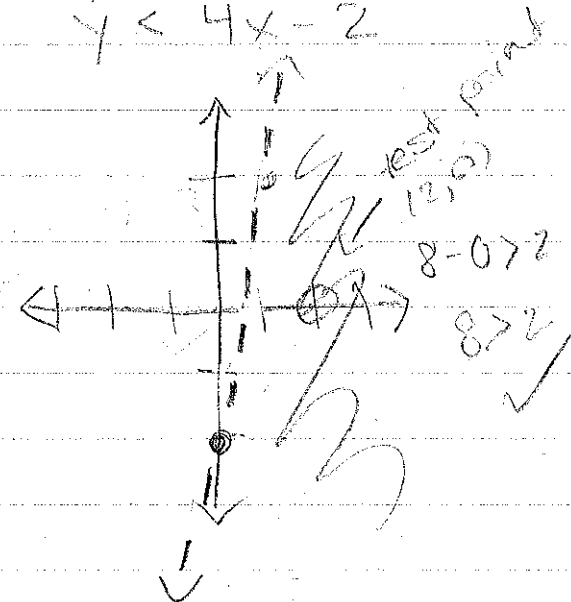 y < 4x - 2
test point
(2,0)
8-0>2
8>2 ✓